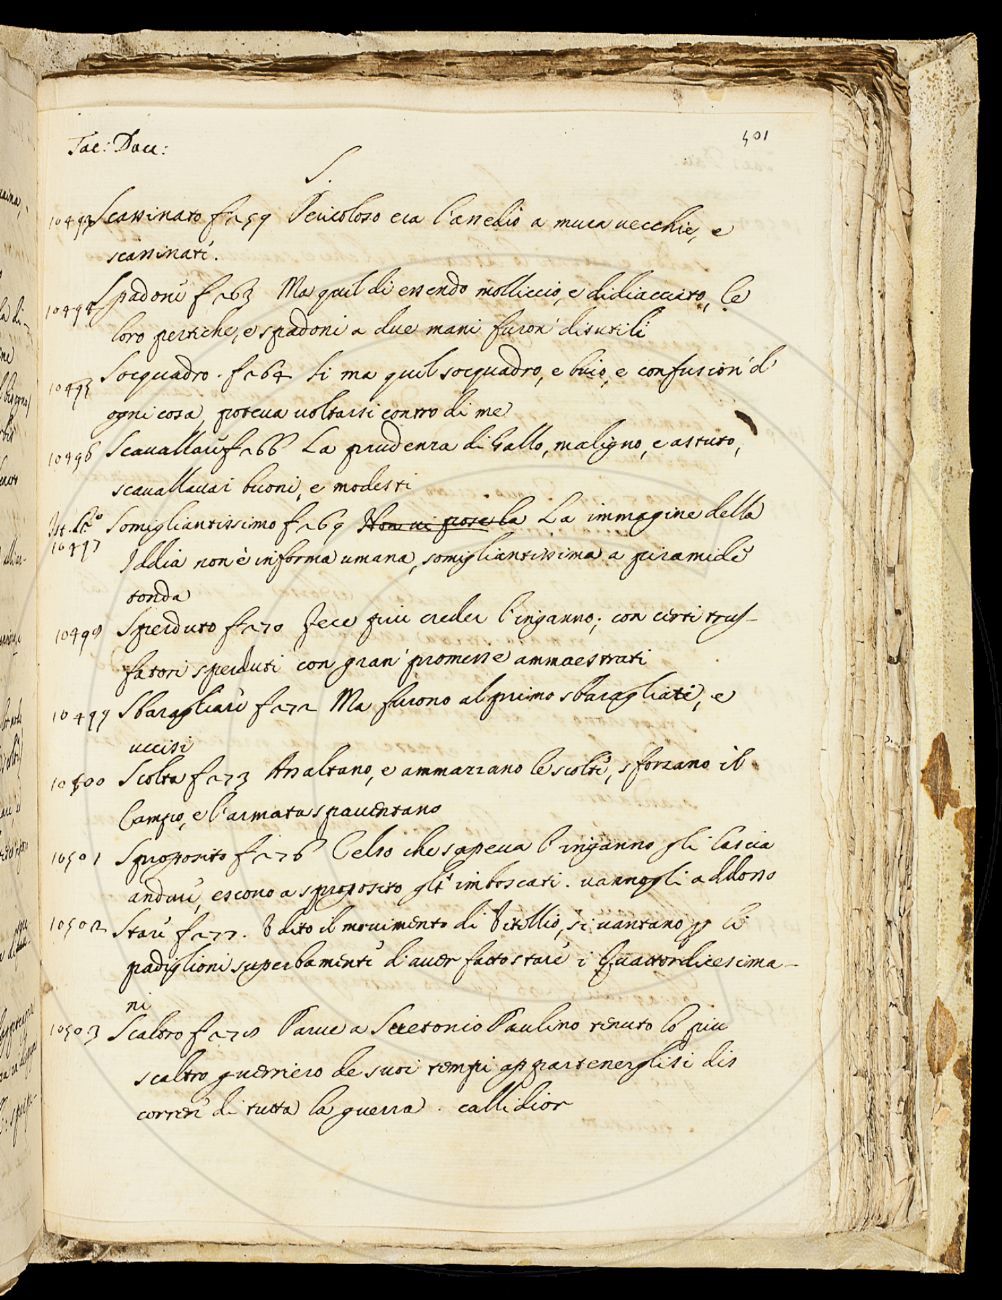 Tac: Dau:
501
S.
10493 Scassinato f. 259 Pericoloso era l'anello a mura vecchie, e
scassinati.
10494 Spadoni f. 263 Ma quel dì essendo molliccio, e didiacciato, le
loro pertiche, e spadoni a due mani furon' disutili
10495 Socquadro. f. 264 Si ma quel socquadro, e buio, e confusion' d'
ogni cosa, poteva voltarsi contro di me
10496 Scavallare f. 266 La prudenza di Gallo, maligno, e astuto,
scavallava i buoni, e modesti
Ist. L.º Somigliantissimo f. 269 La immagine della
10497 Iddia non è in forma umana, somigliantissima a piramide
tonda
10498 Sperduto f. 270 Fece più creder l'inganno; con certi truf-
fatori sperduti con gran' promesse ammaestrati
10499 Sbaragliare f. 272 Ma furono al primo sbaragliati, e
uccisi
10500 Scolta f. 273 Assaltano, e ammazzano le scolte, sforzano il
Campo, e l'armata spaventano
10501 Sproposito f. 276 Celso che sapeva l'inganno gli lascia
andare, escono a sproposito gl' imboscati. vannogli addosso
10502 Stare f. 277. Udito il movimento di Vitellio, si vantano p le
padiglioni superbamente d'aver fatto stare i Quattordicesima-
ni
10503 Scaltro f. 278 Parve a Suetonio Paulino tenuto lo più
scaltro guerriero de suoi tempi appartenerglisi dis
correre di tutta la guerra. callidior